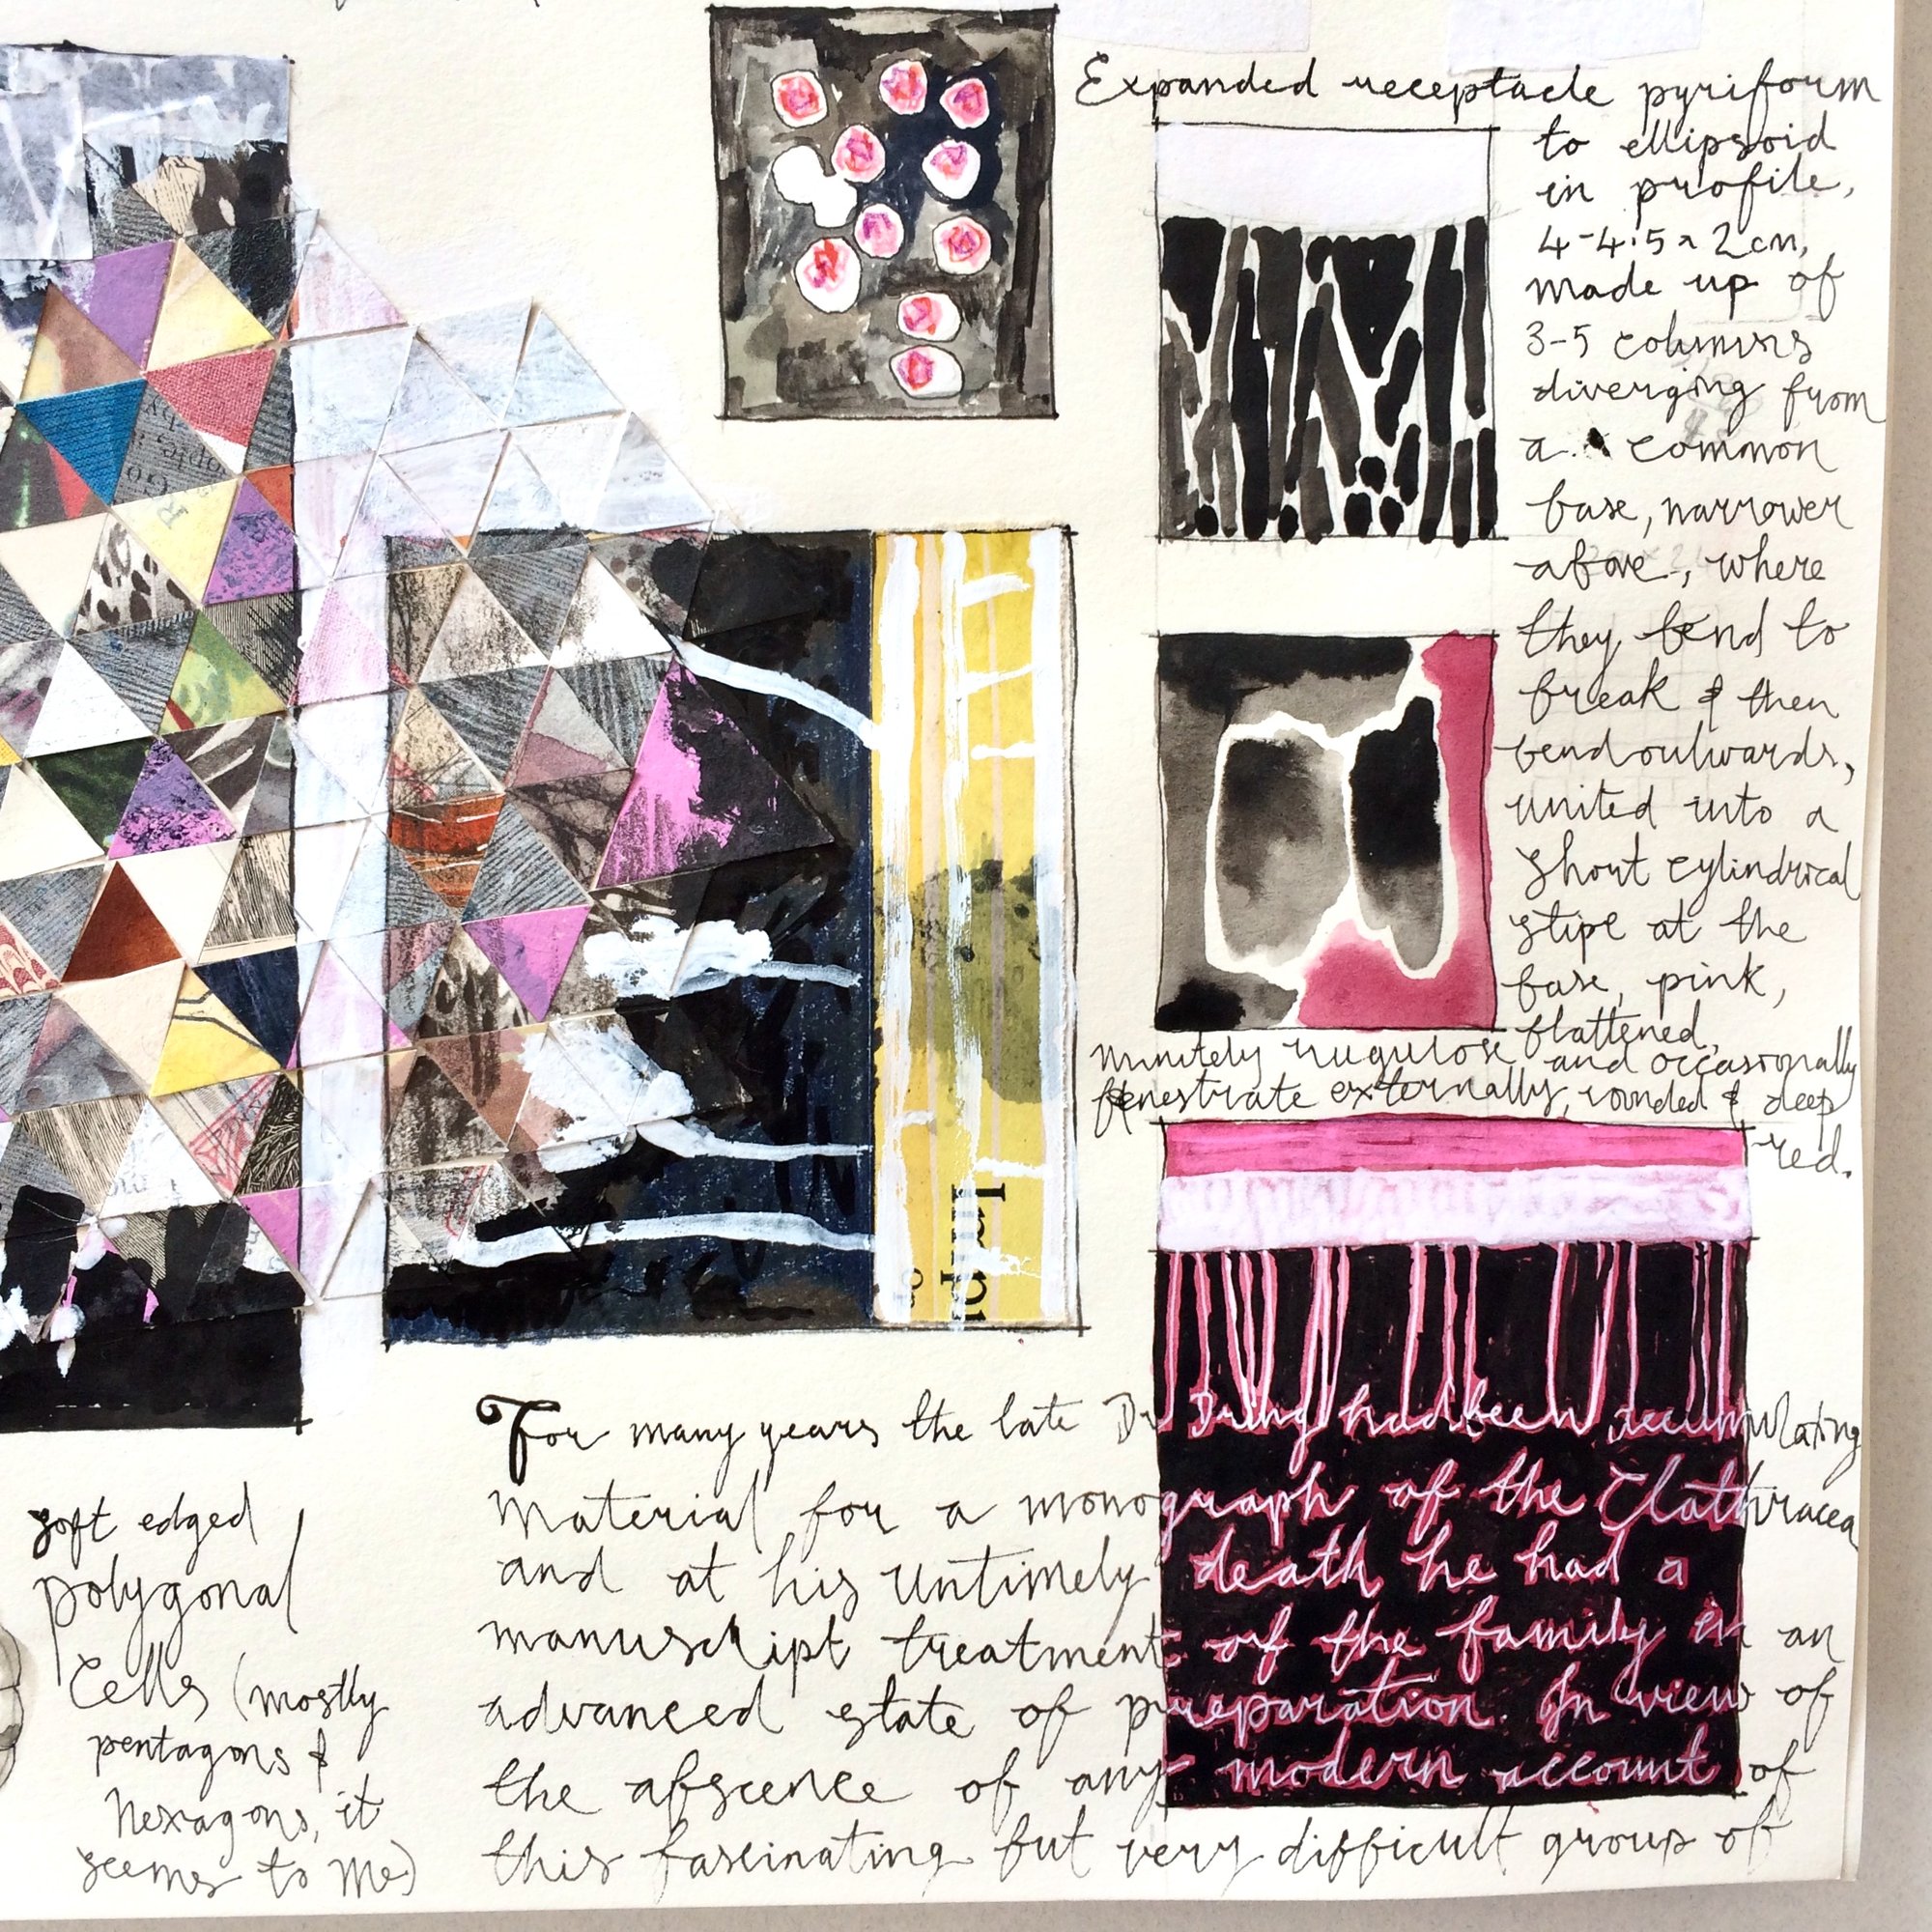 Expanded receptacle pyriform
to ellipsoid
in profile,
4-4.5 x 2cm,
made up of
3-5 columns
diverging from
a common
base, narrower
above, where
they tend to
break & then
bend outwards,
united into a
short cylindrical
stipe at the
base, pink,
flattened,
minutely rugulose and occasionally
fenestrate externally, rounded & deep
red.
For many years the late Dr Dring had been accumulating
Material for a monograph of the Clathracea
and at his untimely death he had a
manuscript treatment of the family in an
advanced state of preparation. In view of
the abscence of any modern account of
this fascinating but very difficult group of
soft edged
polygonal
Cells (mostly
pentagons &
hexagons, it
seems to me)